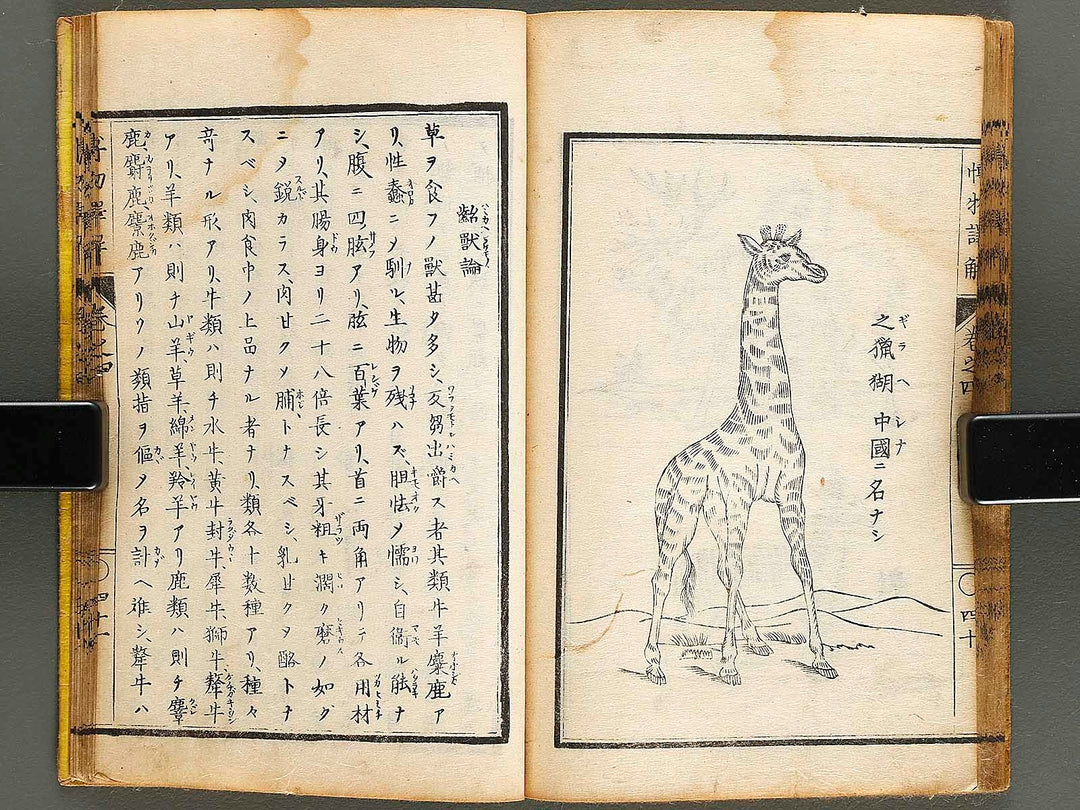 博物譯解
卷之四
四十
之獵猢
ギラヘ
中國ニ名ナシ
シナ
齝獸論
草ヲ食フノ獸甚タ多シ、反芻出嚼ス者其類牛羊麋鹿ア
リ、性蠢ニメ馴レ、生物ヲ残ハズ、胆怯メ懦シ、自衞ル能ナ
シ、腹ニ四胘アリ、胘ニ百葉アリ、首ニ両角アリテ各用材
アリ、其腸身ヨリ二十八倍長シ其牙粗キ濶ク磨ノ如グ
ニメ鋭カラス、肉甘クメ脯トナスベシ、乳甘クメ酪トナ
スベシ、肉食中ノ上品ナル者ナリ、類各十数種アリ、種々
竒ナル形アリ、牛類ハ則チ水牛、黄牛封牛、犀牛、獅牛、犛牛
アリ、羊類ハ則チ山羊、草羊、綿羊、羚羊アリ鹿類ハ則チ麞
鹿、麝鹿、麖鹿アリ
類指ヲ傴メ名ヲ計ヘ难シ、犛牛ハ
博物譯解
卷之四
四十一